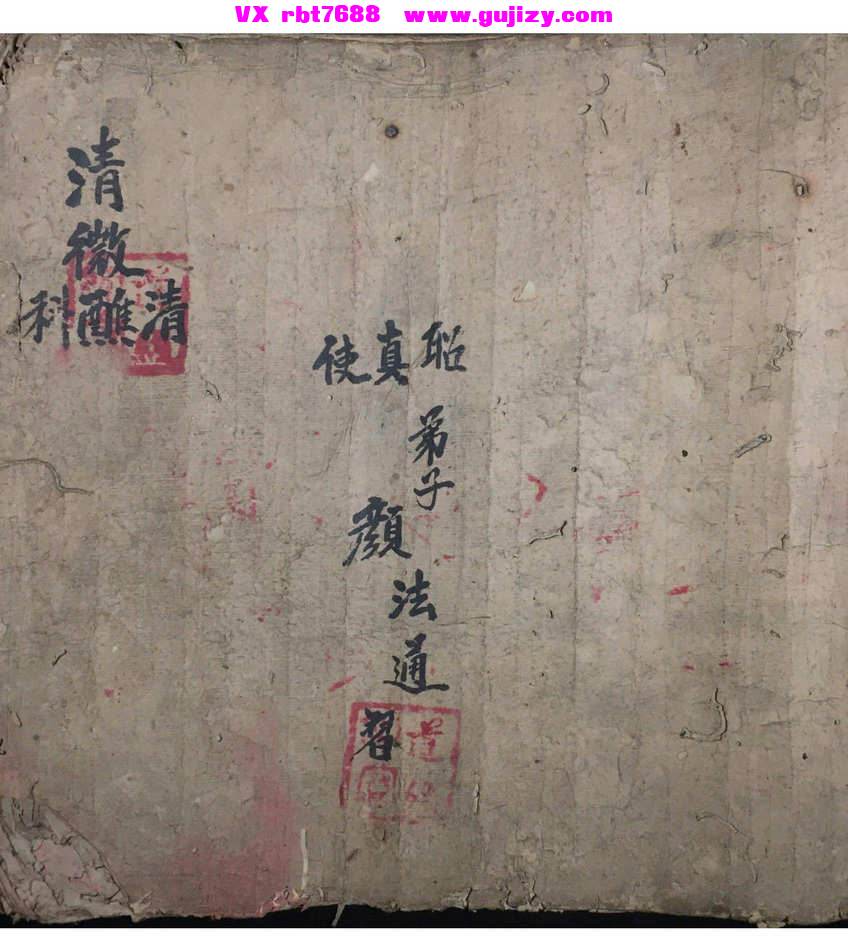 VX rbt7688 www.gujizy.com
清微
清醮科
聁真使
弟子
顏法通
習
道